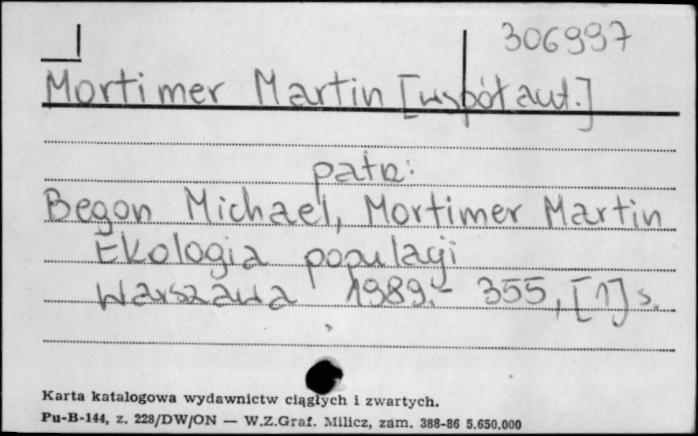 306997
Mortimer Martin [współaut.]
patrz:
Begon Michael, Mortimer Martin
Ekologia populacji
Warszawa 1989.- 355, [1] s.
Karta katalogowa wydawnictw ciągłych i zwartych.
Pu-B-144, z. 228/DW/ON — W.Z.Graf. Milicz, zam. 388-86 5.650.000